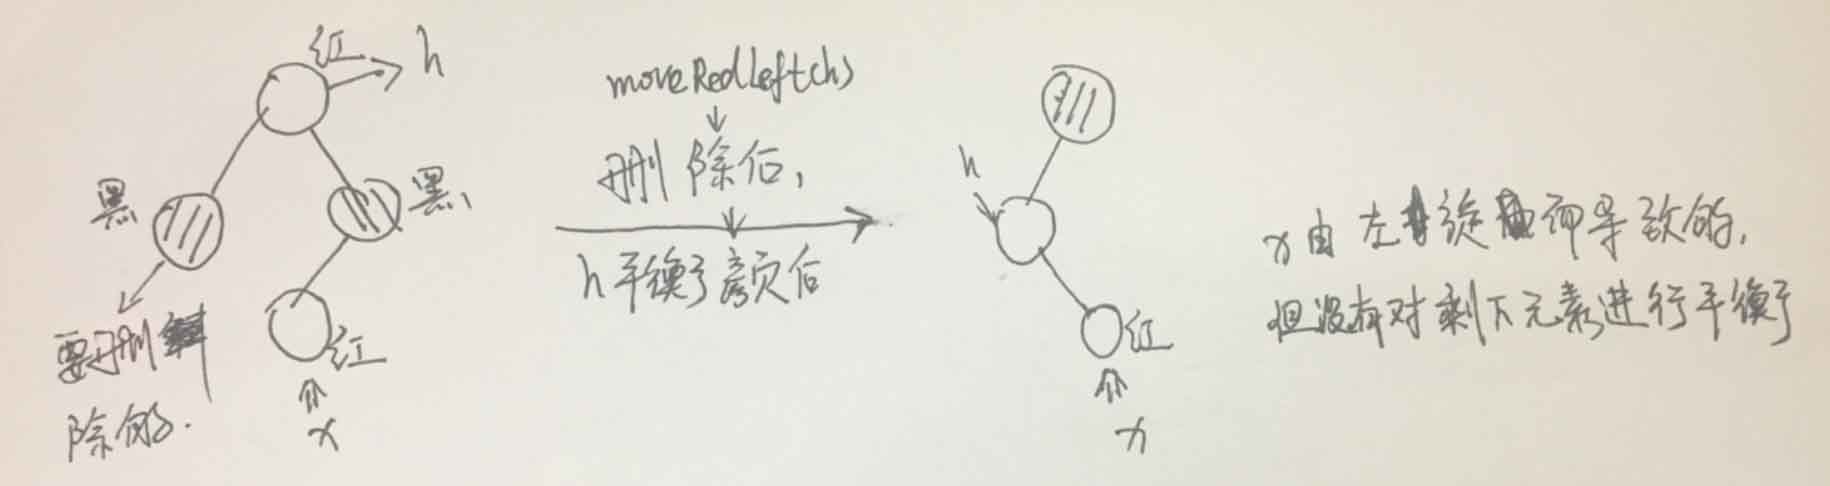 红
h
黑
黑
要删
除的.
红
x
moveRedLeft(h)
删除后,
h平衡了颜后
h
红
x
x由左旋 而导致的,
但没有对剩下元素进行平衡